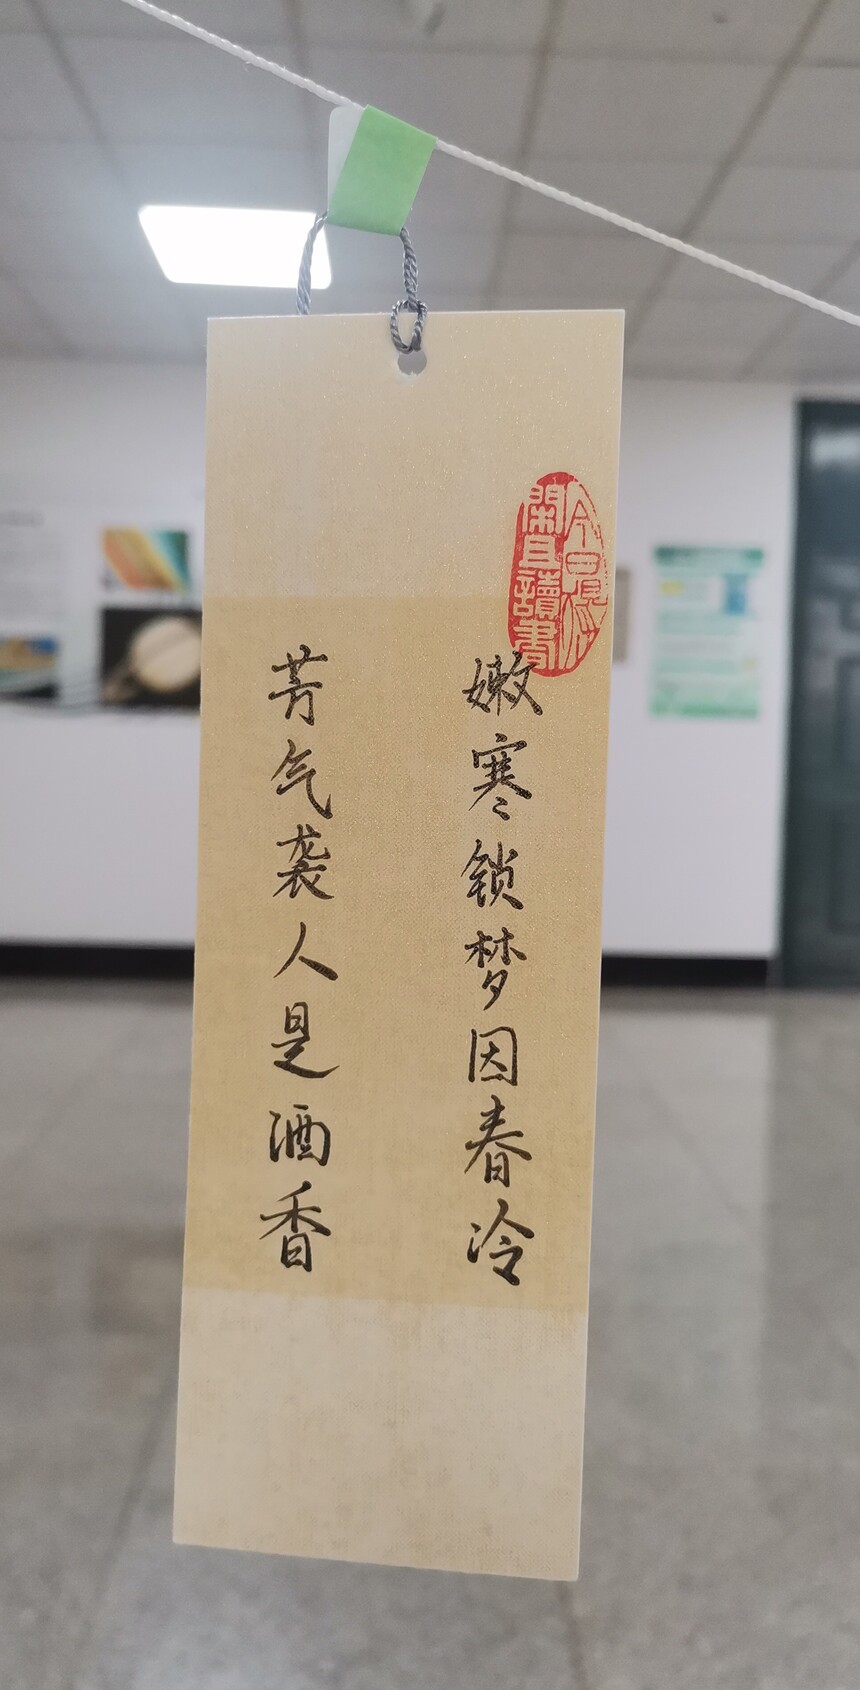 嫩寒锁梦因春冷
芳气袭人是酒香
今日得
閑且讀書